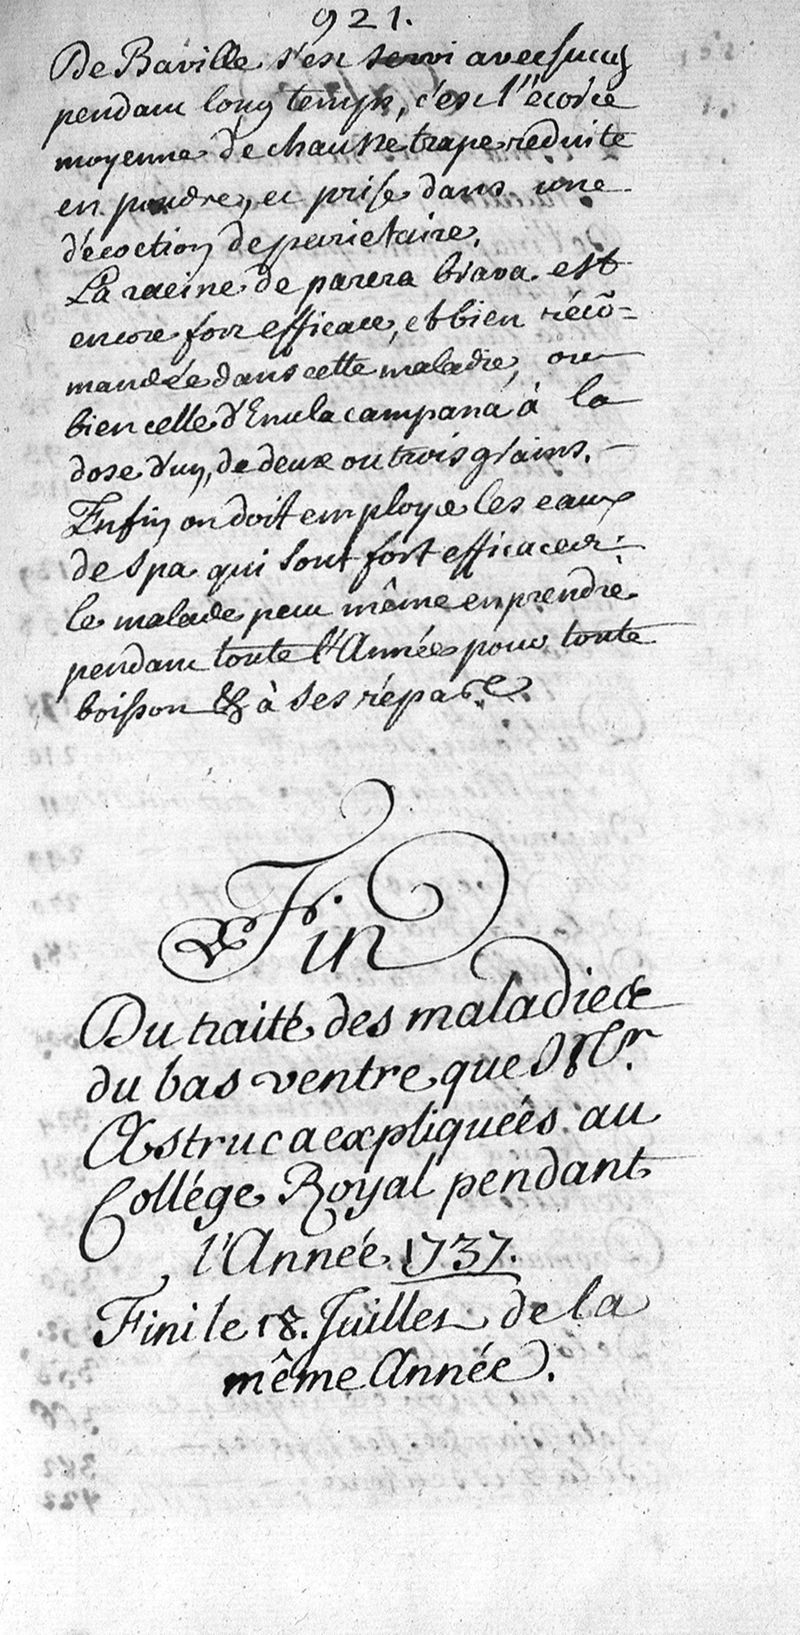 921.
De Baville s'est servi avec succes
pendant long temps, c'est l'écorce
moyenne de chaussetrape reduite
en poudre, et prise dans une
décoction de parietaire.
La racine de parera brava est
encore fort efficace, et bien récõ=
mandée dans cette maladie, ou
bien celle d'Enula campana à la
dose d'un, de deux ou trois grains.
Enfin on doit employe les eaux
de spa qui sont fort efficaces:
le malade peut même en prendre
pendant toute l'Année pour toute
boisson & à ses répas.
Fin
Du traité des maladies
du bas ventre que Mr.
Astruc a expliquées au
Collége Royal pendant
l'Année 1737.
Fini le 18. Juillet de la
même Année.